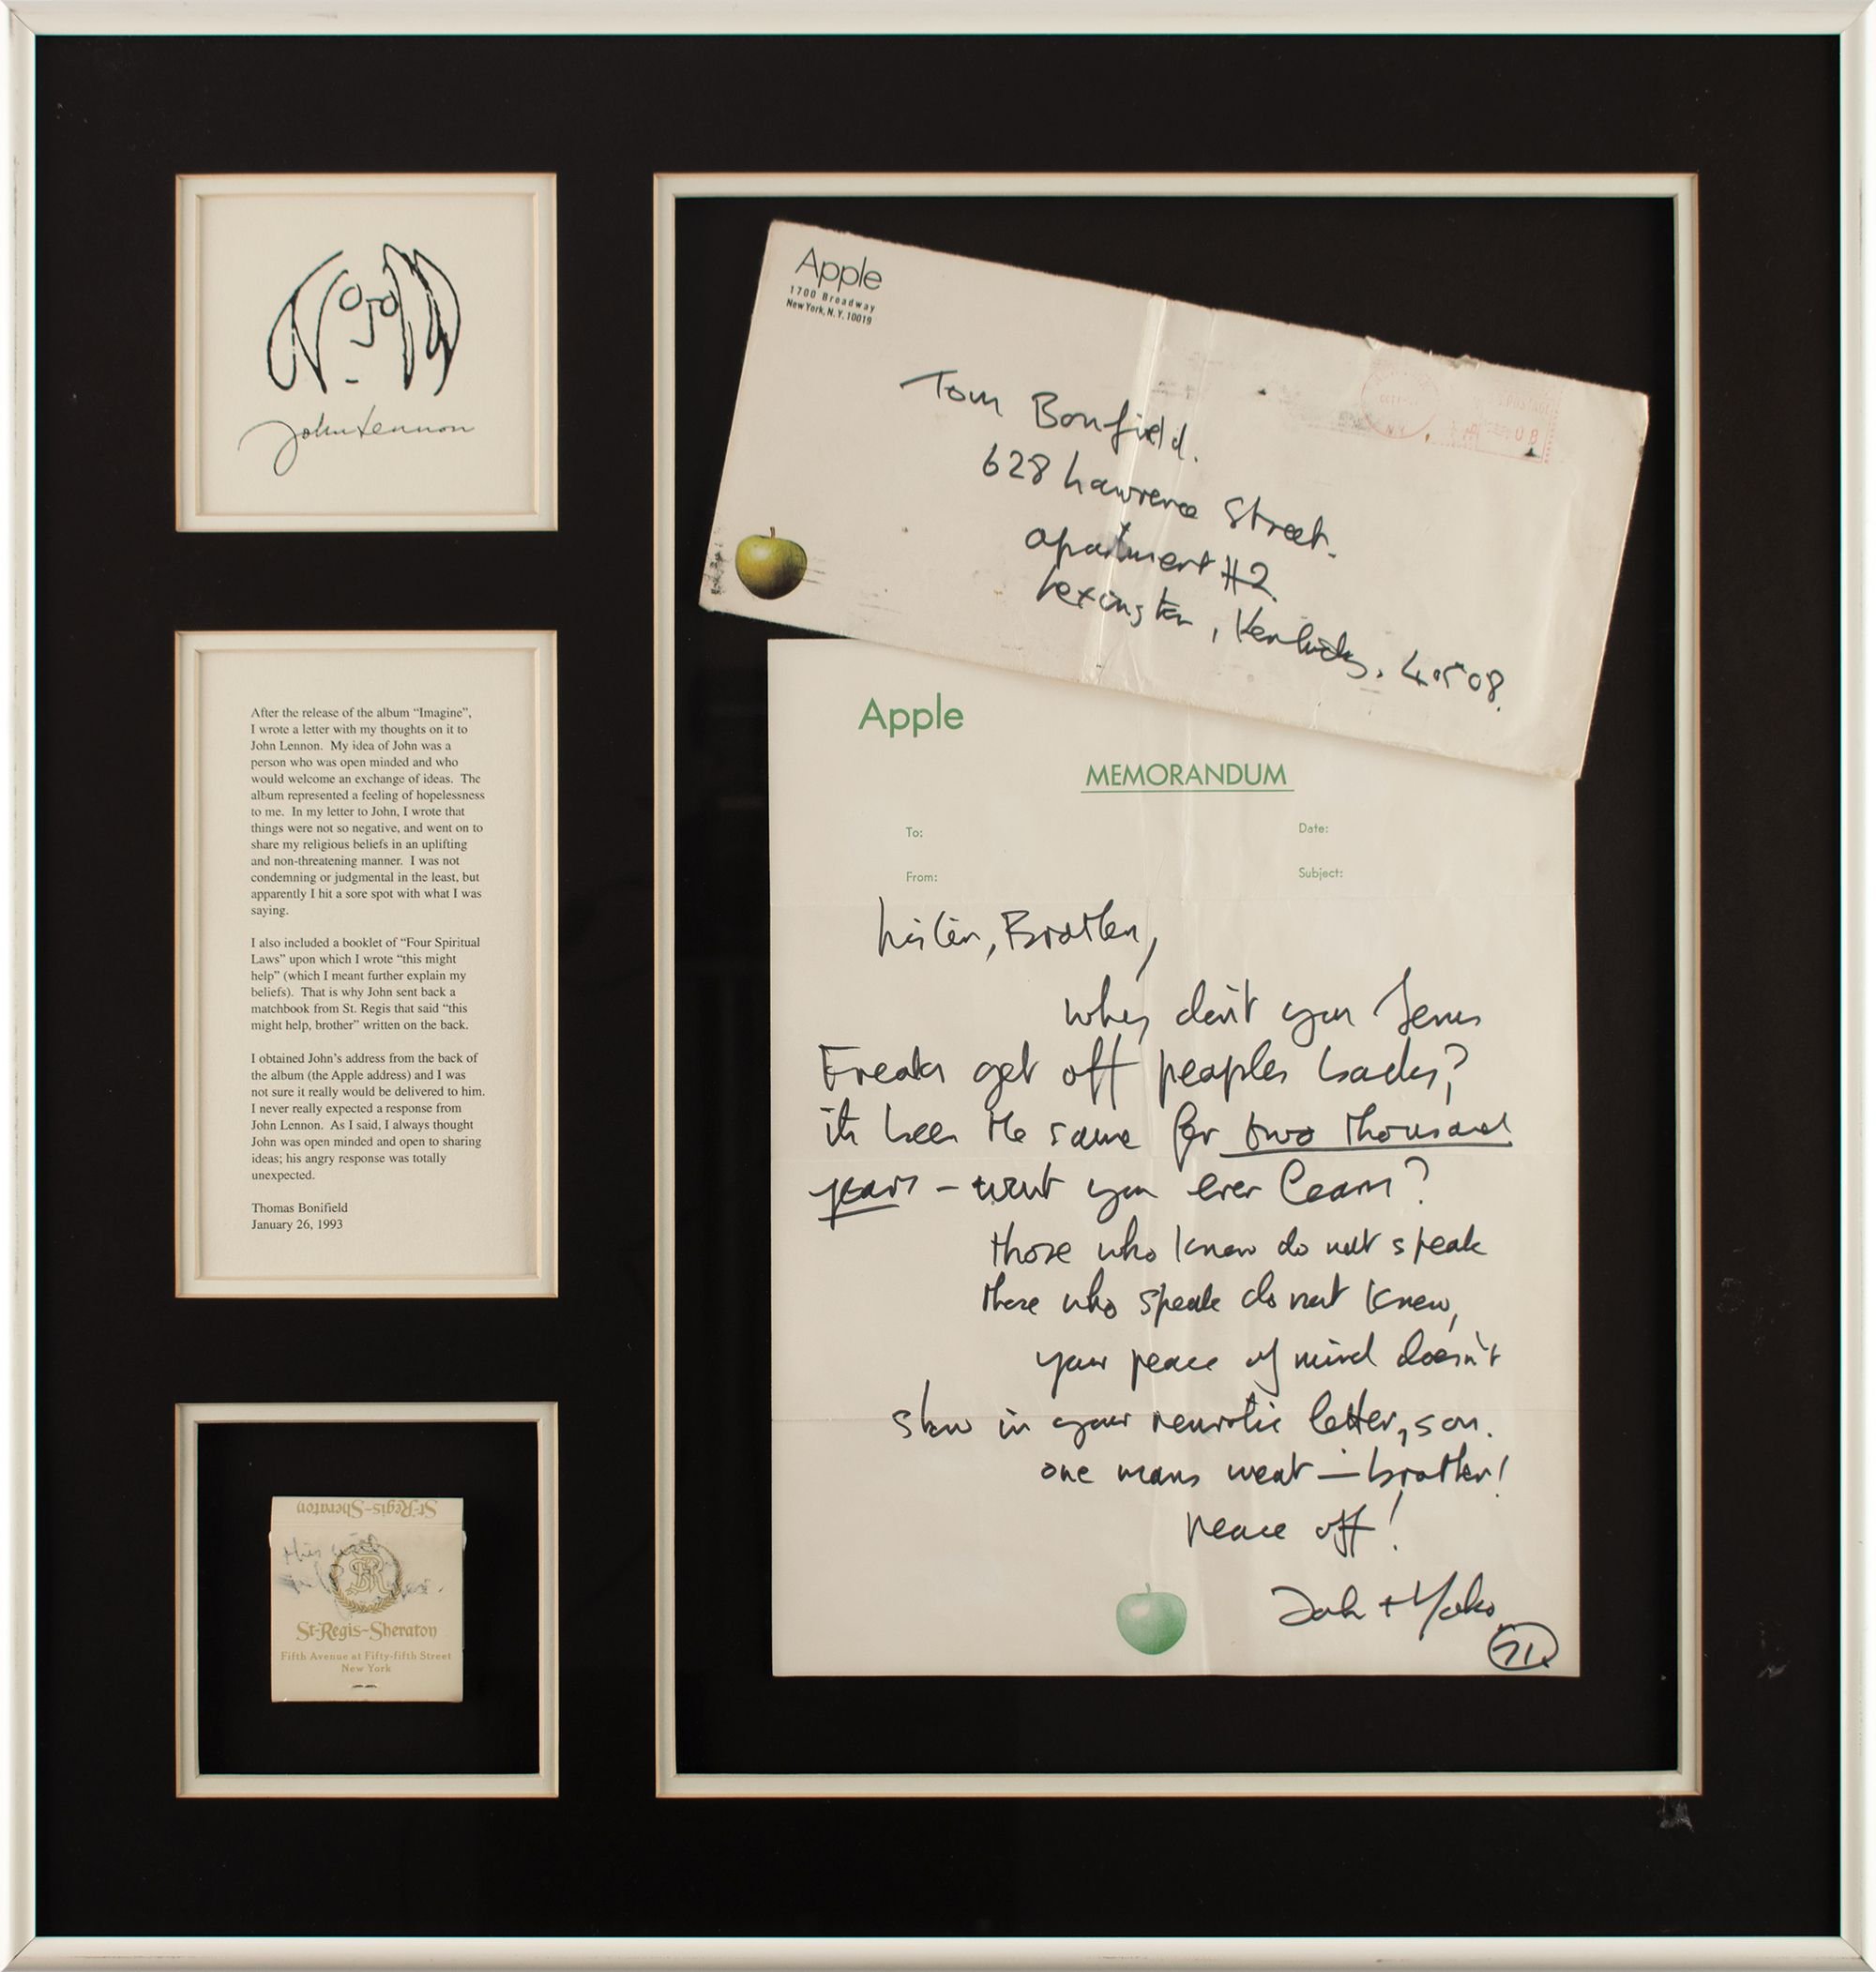 John Lennon
After the release of the album “Imagine”,
I wrote a letter with my thoughts on it to
John Lennon. My idea of John was a
person who was open minded and who
would welcome an exchange of ideas. The
album represented a feeling of hopelessness
to me. In my letter to John, I wrote that
things were not so negative, and went on to
share my religious beliefs in an uplifting
and non-threatening manner. I was not
condemning or judgmental in the least, but
apparently I hit a sore spot with what I was
saying.
I also included a booklet of “Four Spiritual
Laws” upon which I wrote “this might
help” (which I meant further explain my
beliefs). That is why John sent back a
matchbook from St. Regis that said “this
might help, brother” written on the back.
I obtained John’s address from the back of
the album (the Apple address) and I was
not sure it really would be delivered to him.
I never really expected a response from
John Lennon. As I said, I always thought
John was open minded and open to sharing
ideas; his angry response was totally
unexpected.
Thomas Bonifield
January 26, 1993
St-Regis-Sheraton
this
SR
St-Regis-Sheraton
Fifth Avenue at Fifty-fifth Street
New York
Apple
1700 Broadway
New York, N.Y. 10019
Tom Bonfield.
628 Lawrence Street.
apartment #2.
Lexington, Kentucky. 40508.
Apple
MEMORANDUM
To:
Date:
From:
Subject:
Listen, Brother,
why don't you Jesus
Freaks get off peoples backs?
its been the same for two thousand
years - wont you ever learn?
those who know do not speak
those who speak do not know,
your peace of mind doesn't
show in your neurotic letter, son.
one mans meat — brother!
peace off!
John + Yoko
71